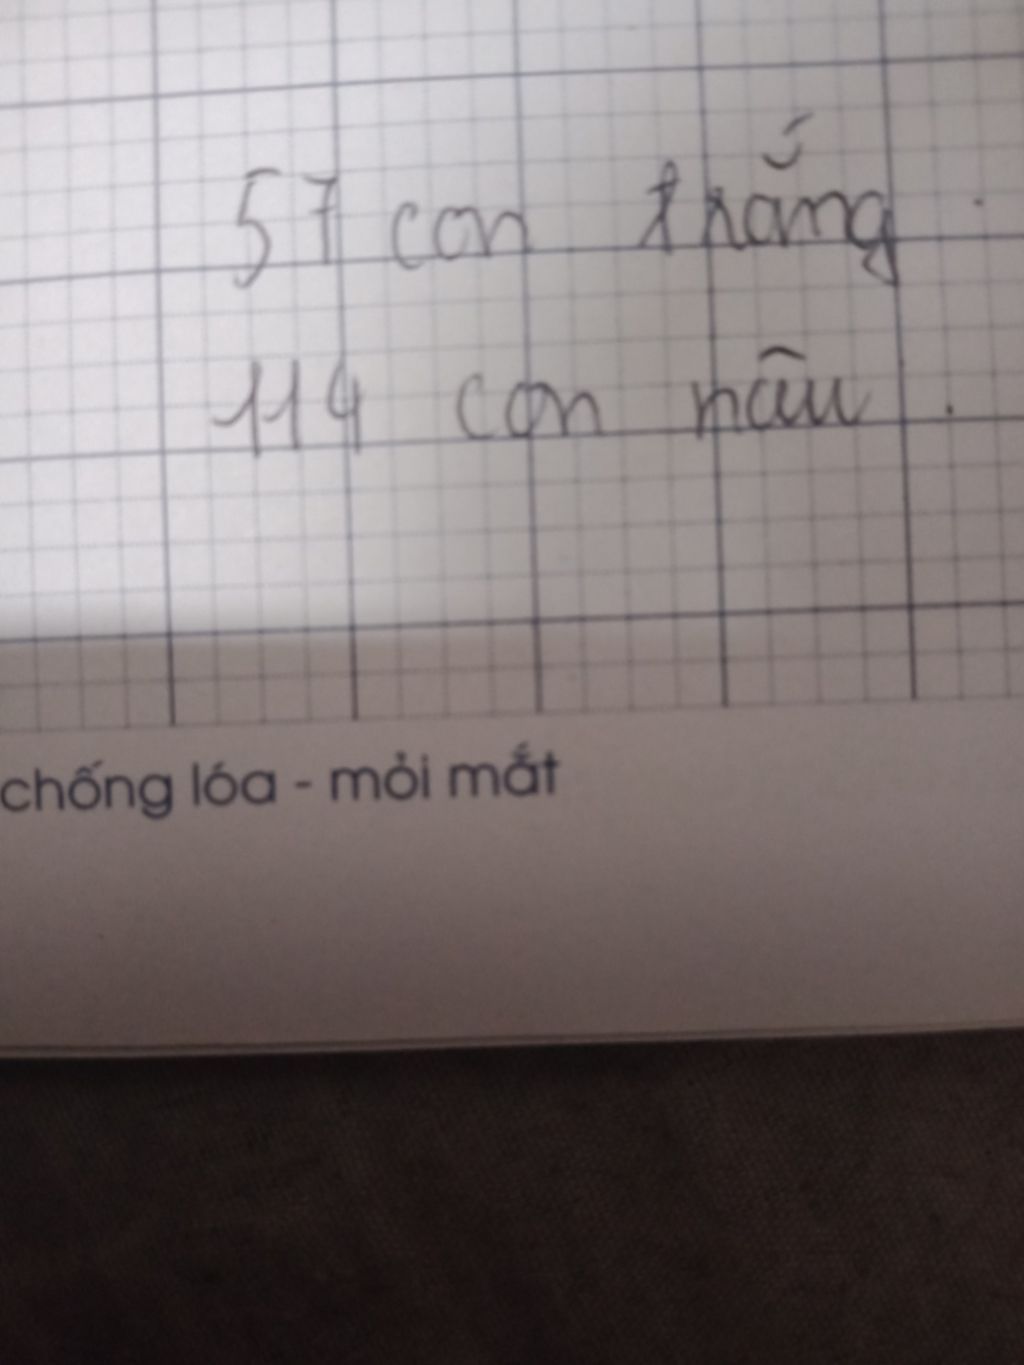 57 con trắng.
114 con nâu.
chống lóa - mỏi mắt